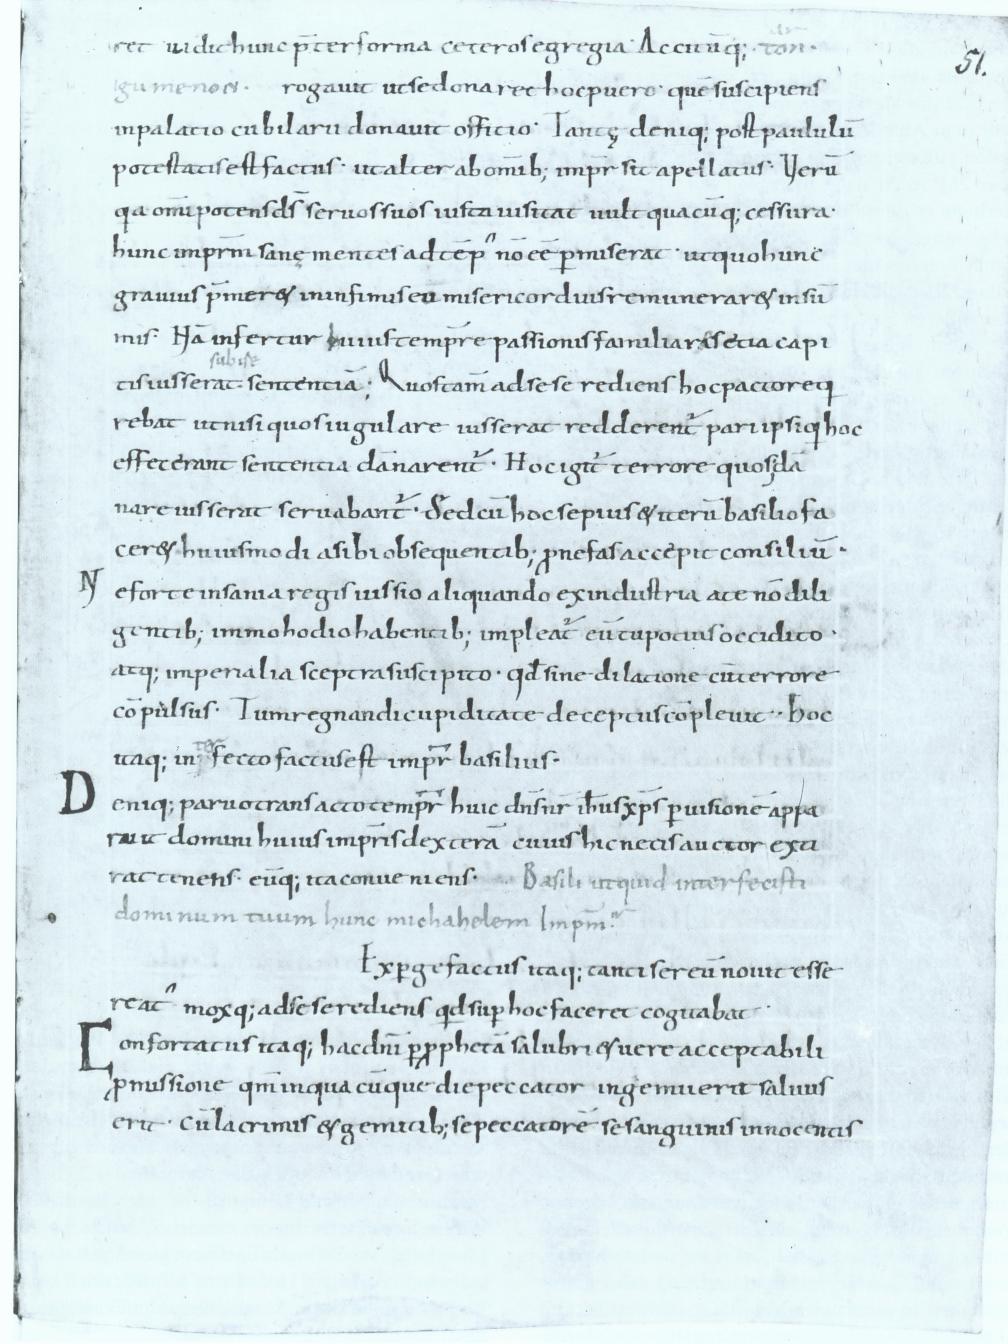 ret uidic hunc p̄ter forma ceteros egregia· Accitūq;
51.
gumenos· rogauit ut se donaret hoc puero· quē suscipiens
inpalatio cubilarii donauit officio· Tantę deniq; post paululū
potestatis est factus· ut alter ab om̄ib; imp̄r sit apellatus· Verū
q̄a om̄ipotens d̄s seruos suos iusta uisitat uult quacūq; cessura·
hunc inpr̄m sanę mentes ad tēp̄ nō eē p̄miserat· ut quo hunc
grauius p̄mer& in infimis eū misericordius remunerar& in sū
mis· Nā infertur huius tempr̄e passionis familiares etia capi
subise
tis iusserat sententiā; Quos tam̄ ad se se rediens hoc pacto req
rebat ut nisi quos iugulare iusserat redderent̄ pari ipsi q hoc
effecerant sententia dānarent̄· Hoc igit̄ terrore quos dā
nare iusserat seruabant̄· Sed cū hoc sepius & iterū basilio fa
cer& huiusmodi a sibi obsequentib; pnefas accēpit consiliū·
N
e forte insania regis iussio aliquando ex industria a te nō dili
gentib; immo hodio habentib; impleat̄ eū tu potius occidito·
atq; imperialia sceptra suscipito· qd̄ sine dilatione cū terrore
cōpulsus· Tum regnandi cupiditate deceptus cōpleuit·· Hoc
itaq; in ter fecto factus est imp̄r basilius·
D
eniq; paruo transacto temp̄r huic dn̄s nr̄ ih̄us xp̄s p uisionē appa
ruit domini huius impr̄is dexterā cuius hic necis auctor exti
rat tenens· eūq; ita conueniens· Basili utquid interfecisti
dominum tuum hunc michahelem Imp̄m
Expgefactus itaq; tanti se reū nouit esse
reat̄ moxq; ad se se rediens qd̄ sup hoc faceret cogitabat·
C
onfortatus itaq; hac dn̄i p pphetā salubri & uere acceptabili
pmissione qm̄ in quacūque die peccator ingemuerit saluus
erit· cū lacrimis & gemitib; se peccatorē se sanguinis innocentis